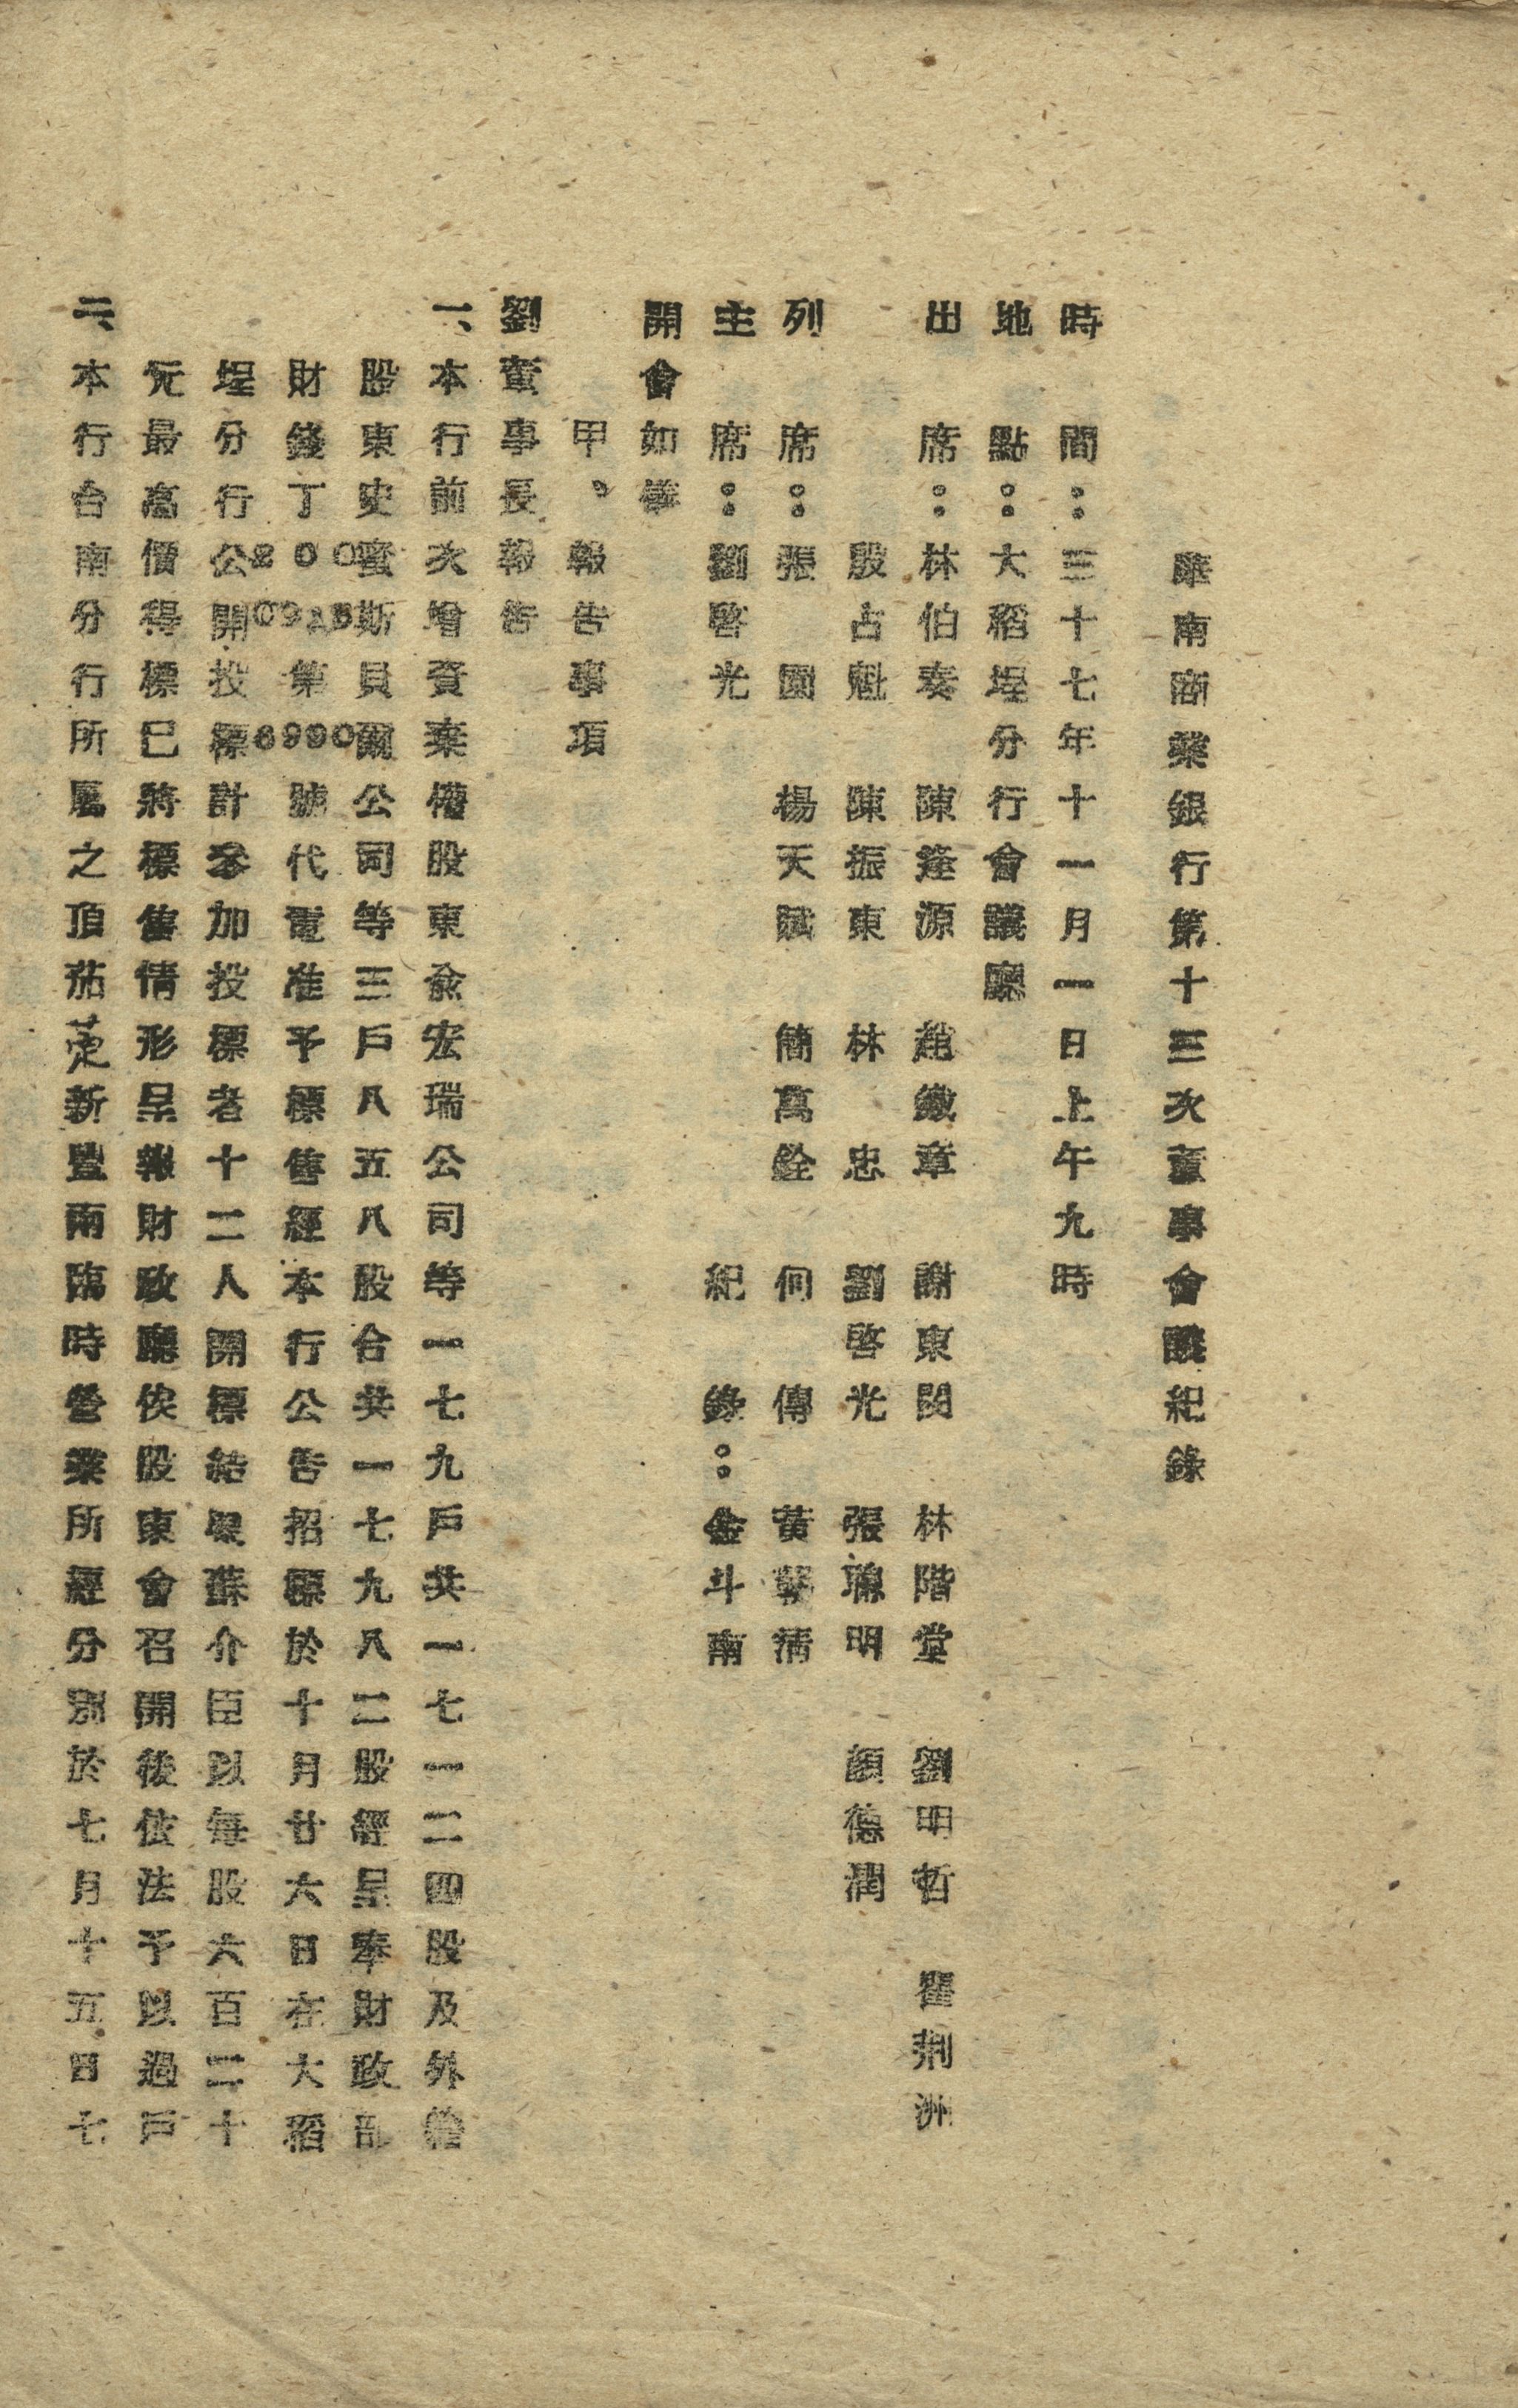 華南商業銀行第十三次董事會議紀錄
時間：三十七年十一月一日上午九時
地點：大稻埕分行會議廳
出席：林伯奏 陳逢源 趙鐵章 謝東閔 林階堂 劉明哲 翟荆洲
殷占魁 陳振東 林忠 劉啓光 張聰明 顏德潤
列席：張園 楊天賦 簡萬銓 何傳 黃摯清
主席：劉啓光 紀錄：金斗南
開會如儀
甲、報告事項
劉董事長報告
一、本行前次增資棄權股東兪宏瑞公司等一七九戶共一七一二四股及外僑
股東史蜜斯貝爾公司等三戶八五八股合共一七九八二股經呈奉財政部
財錢丁 第 號代電准予標售經本行公告招標於十月廿六日在大稻
埕分行公開投標計參加投標者十二人開標結果蘇介臣以每股六百二十
元最高價得標已將標售情形呈報財政廳俟股東會召開後依法予以過戶
二、本行台南分行所屬之頂茄萣新豐兩臨時營業所經分別於七月十五日七